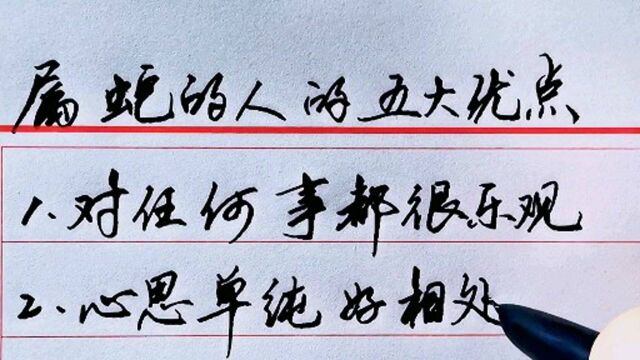 属蛇的人的五大优点
1.对任何事都很乐观
2.心思单纯好相处